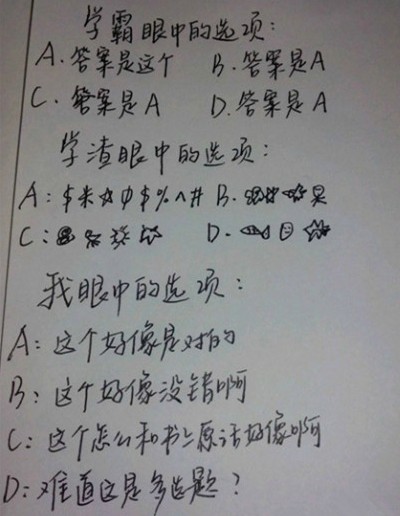 学霸眼中的选项：
A.答案是这个 B.答案是A
C.答案是A D.答案是A
学渣眼中的选项：
A：$米☆φ$%^# B.
C： D.
我眼中的选项：
A：这个好像是对的
B：这个好像没错啊
C：这个怎么和书上原话好像啊
D：难道这是多选题？